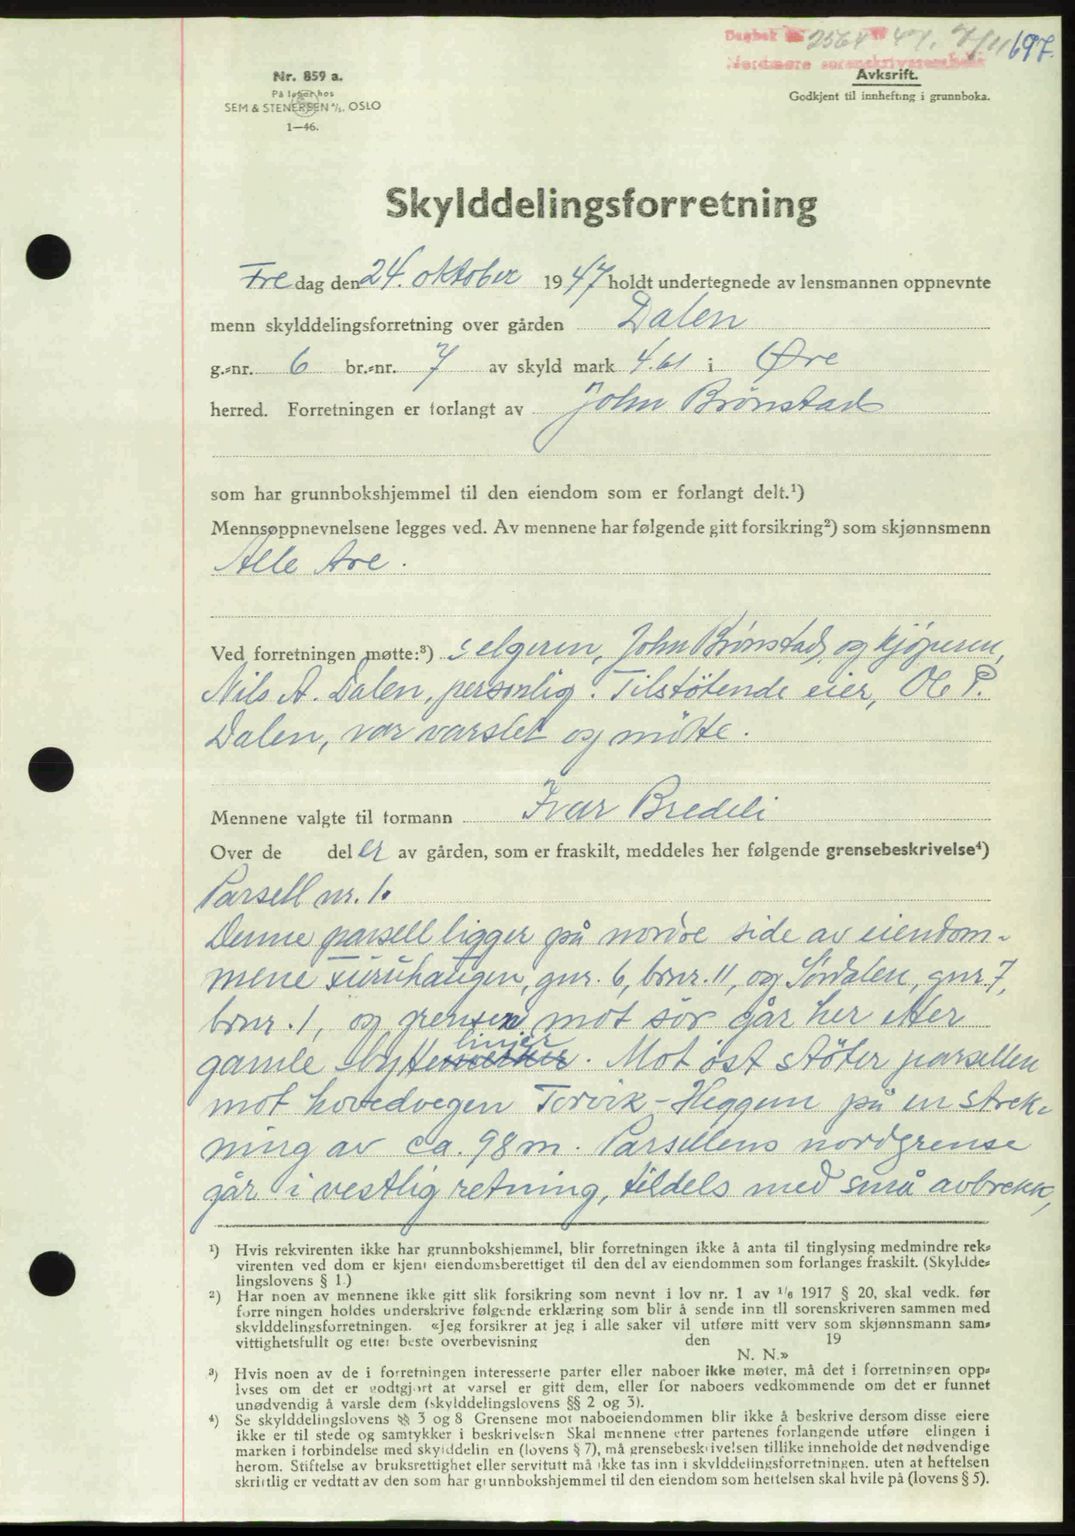 Dagbok nr. 2564 19 47. 7/11 697.
Nordmøre sorenskriverembete
Nr. 859 a.
På lager hos
SEM & STENERSEN A/S. OSLO
1—46.
Avksrift.
Godkjent til innhefting i grunnboka.
Skylddelingsforretning
Fredag den 24. oktober 1947 holdt undertegnede av lensmannen oppnevnte
menn skylddelingsforretning over gården Dalen
g.-nr. 6 br.-nr. 7 av skyld mark 4.61 i Øre
herred. Forretningen er forlangt av John Brønstad
som har grunnbokshjemmel til den eiendom som er forlangt delt.¹)
Mennsoppnevnelsene legges ved. Av mennene har følgende gitt forsikring²) som skjønnsmenn
Alle tre.
Ved forretningen møtte:³) selgeren, John Brønstad, og kjøperen,
Nils A. Dalen, personlig. Tilstøtende eier, Ole P.
Dalen, var varslet og møtte.
Mennene valgte til formann Ivar Bredeli
Over de del er av gården, som er fraskilt, meddeles her følgende grensebeskrivelse⁴)
Parsell nr. 1.
Denne parsell ligger på nordre side av eiendom-
mene Furuhaugen, gnr. 6, brnr. 11, og Sørdalen, gnr. 7,
brnr. 1, og grensen mot sør går her etter
linjer
gamle bytte. Mot øst støter parsellen
mot hovedvegen Torvik-Heggem på en strek-
ning av ca. 98 m. Parsellens nordgrense
går i vestlig retning, tildels med små avbrekk,
¹) Hvis rekvirenten ikke har grunnbokshjemmel, blir forretningen ikke å anta til tinglysing medmindre rek-
virenten ved dom er kjent eiendomsberettiget til den del av eiendommen som forlanges fraskilt. (Skyldde-
lingslovens § 1.)
²) Har noen av mennene ikke gitt slik forsikring som nevnt i lov nr. 1 av 1/6 1917 § 20, skal vedk. før
forretningen holdes underskrive følgende erklæring som blir å sende inn til sorenskriveren sammen med
skylddelingsforretningen. «Jeg forsikrer at jeg i alle saker vil utføre mitt verv som skjønnsmann sam-
vittighetsfullt og etter beste overbevisning den 19
N. N.»
³) Hvis noen av de i forretningen interesserte parter eller naboer ikke møter, må det i forretningen opp-
lyses om det er godtgjort at varsel er gitt dem, eller for naboers vedkommende om det er funnet
unødvendig å varsle dem (skylddelingslovens §§ 2 og 3).
⁴) Se skylddelingslovens §§ 3 og 8 Grensene mot naboeiendommen blir ikke å beskrive dersom disse eiere
ikke er til stede og samtykker i beskrivelsen Skal mennene etter partenes forlangende utføre delingen i
marken i forbindelse med skylddelingen (lovens § 7), må grensebeskrivelsen tillike inneholde det nødvendige
herom. Stiftelse av bruksrettighet eller servitutt må ikke tas inn i skylddelingsforretningen. uten at heftelsen
skriftlig er vedtatt av den som har grunnbokshjemmel til den eiendom som heftelsen skal hvile på (lovens § 5).